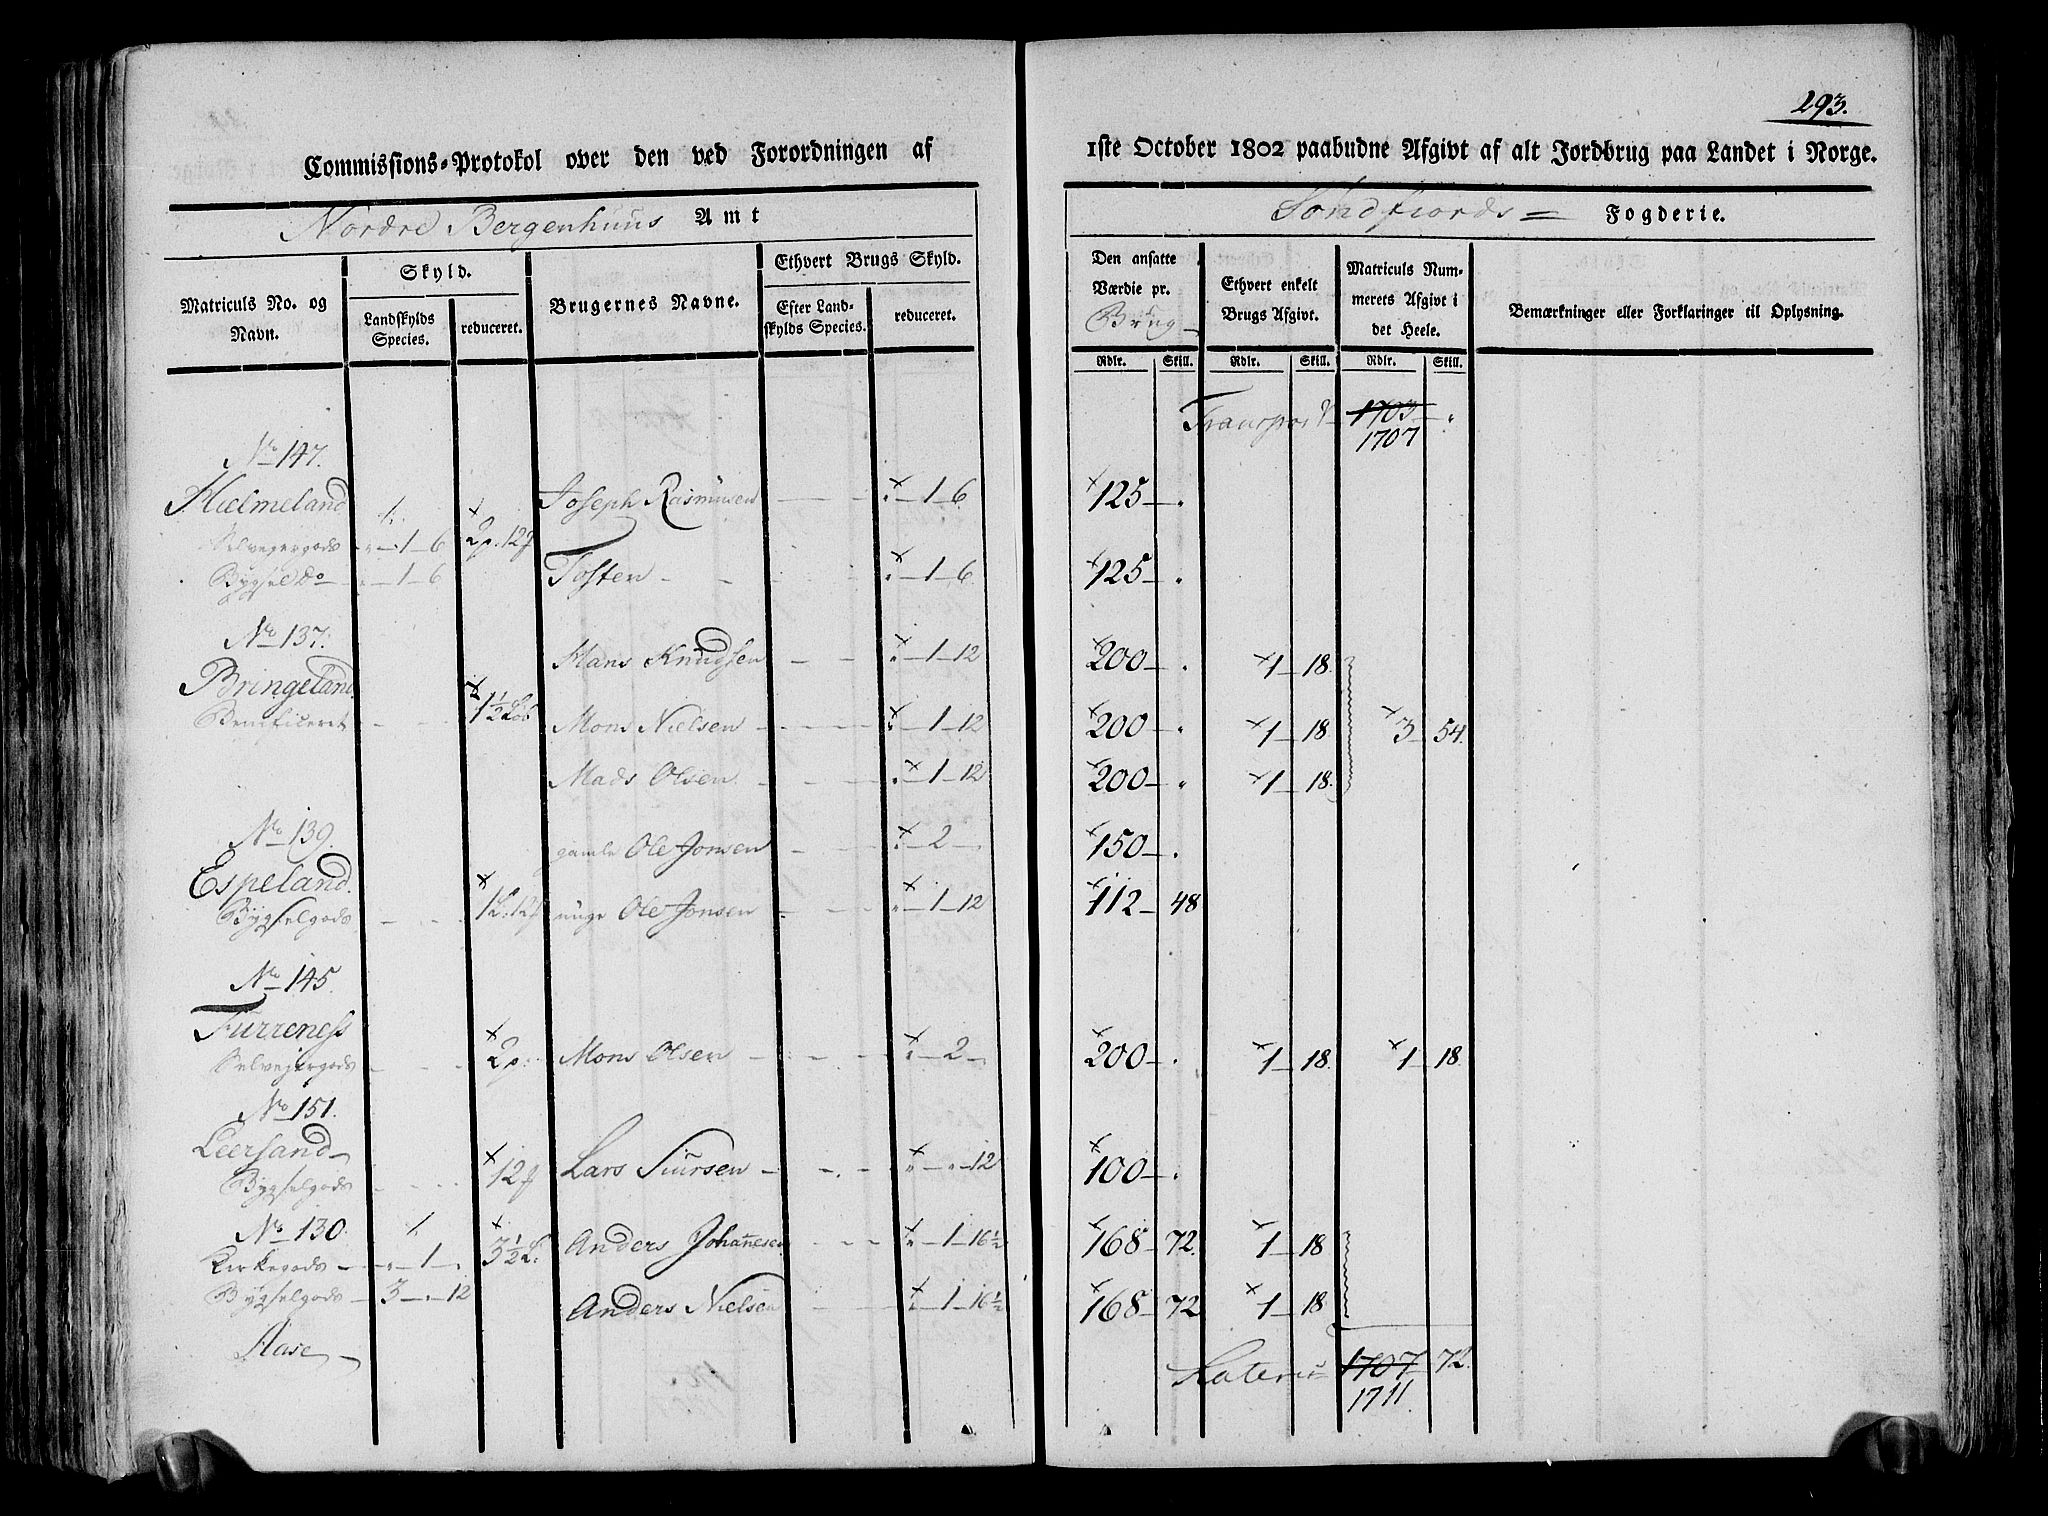 293.
Commissions-Protokol over den ved Forordningen af 1ste October 1802 paabudne Afgivt af alt Jordbrug paa Landet i Norge.
Nordre Bergenhuus Amt
Söndfiords Fogderie.
Matriculs No. og Navn.
Skyld.
Landskylds Species.
reduceret.
Brugernes Navne.
Ethvert Brugs Skyld.
Efter Landskylds Species.
reduceret.
Den ansatte Værdie pr. Brug
Ethvert enkelt Brugs Afgivt.
Matriculs Nummerets Afgivt i det Heele.
Bemærkninger eller Forklaringer til Oplysning.
Rdlr. Skill. Rdlr. Skill. Rdlr. Skill.
Transport 1703
1707
No 147.
Hielmeland Joseph Rasmusen 1 6 125
Selvejergods 1 6 2p. 12
Bygsel do 1 6 Tosten 1 6 125
No 137.
Hans Knudsen 1 12 200 1 18
Bringeland
Beneficeret 1½ Løb Mons Nielsen 1 12 200 1 18 3 54.
Mads Olsen 1 12 200 1 18
No 139.
gamle Ole Jonsen 2 150
Espeland
Bygselgods 1L. 12 unge Ole Jonsen 1 12 112 48
No 145
Furreness
Selvejergods 2p. Mons Olsen 2 200 1 18 1 18
No 151.
Leersand
Bygselgods 12 Lars Siursen 12 100
No 130 3½ L. Anders Johannesen 1 16½ 168 72 1 18
Kirkegods 1
Bygselgods 3 12 Anders Nielsen 1 16½ 168 72 1 18
Aase
Lateris 1707 72
1711